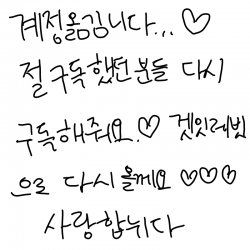 계정옮김니다...♡
절 구독했던 분들 다시
구독해줘요.♡ 겟잇레빈
으로 다시 올께요 ♡♡♡
사랑합뉘다